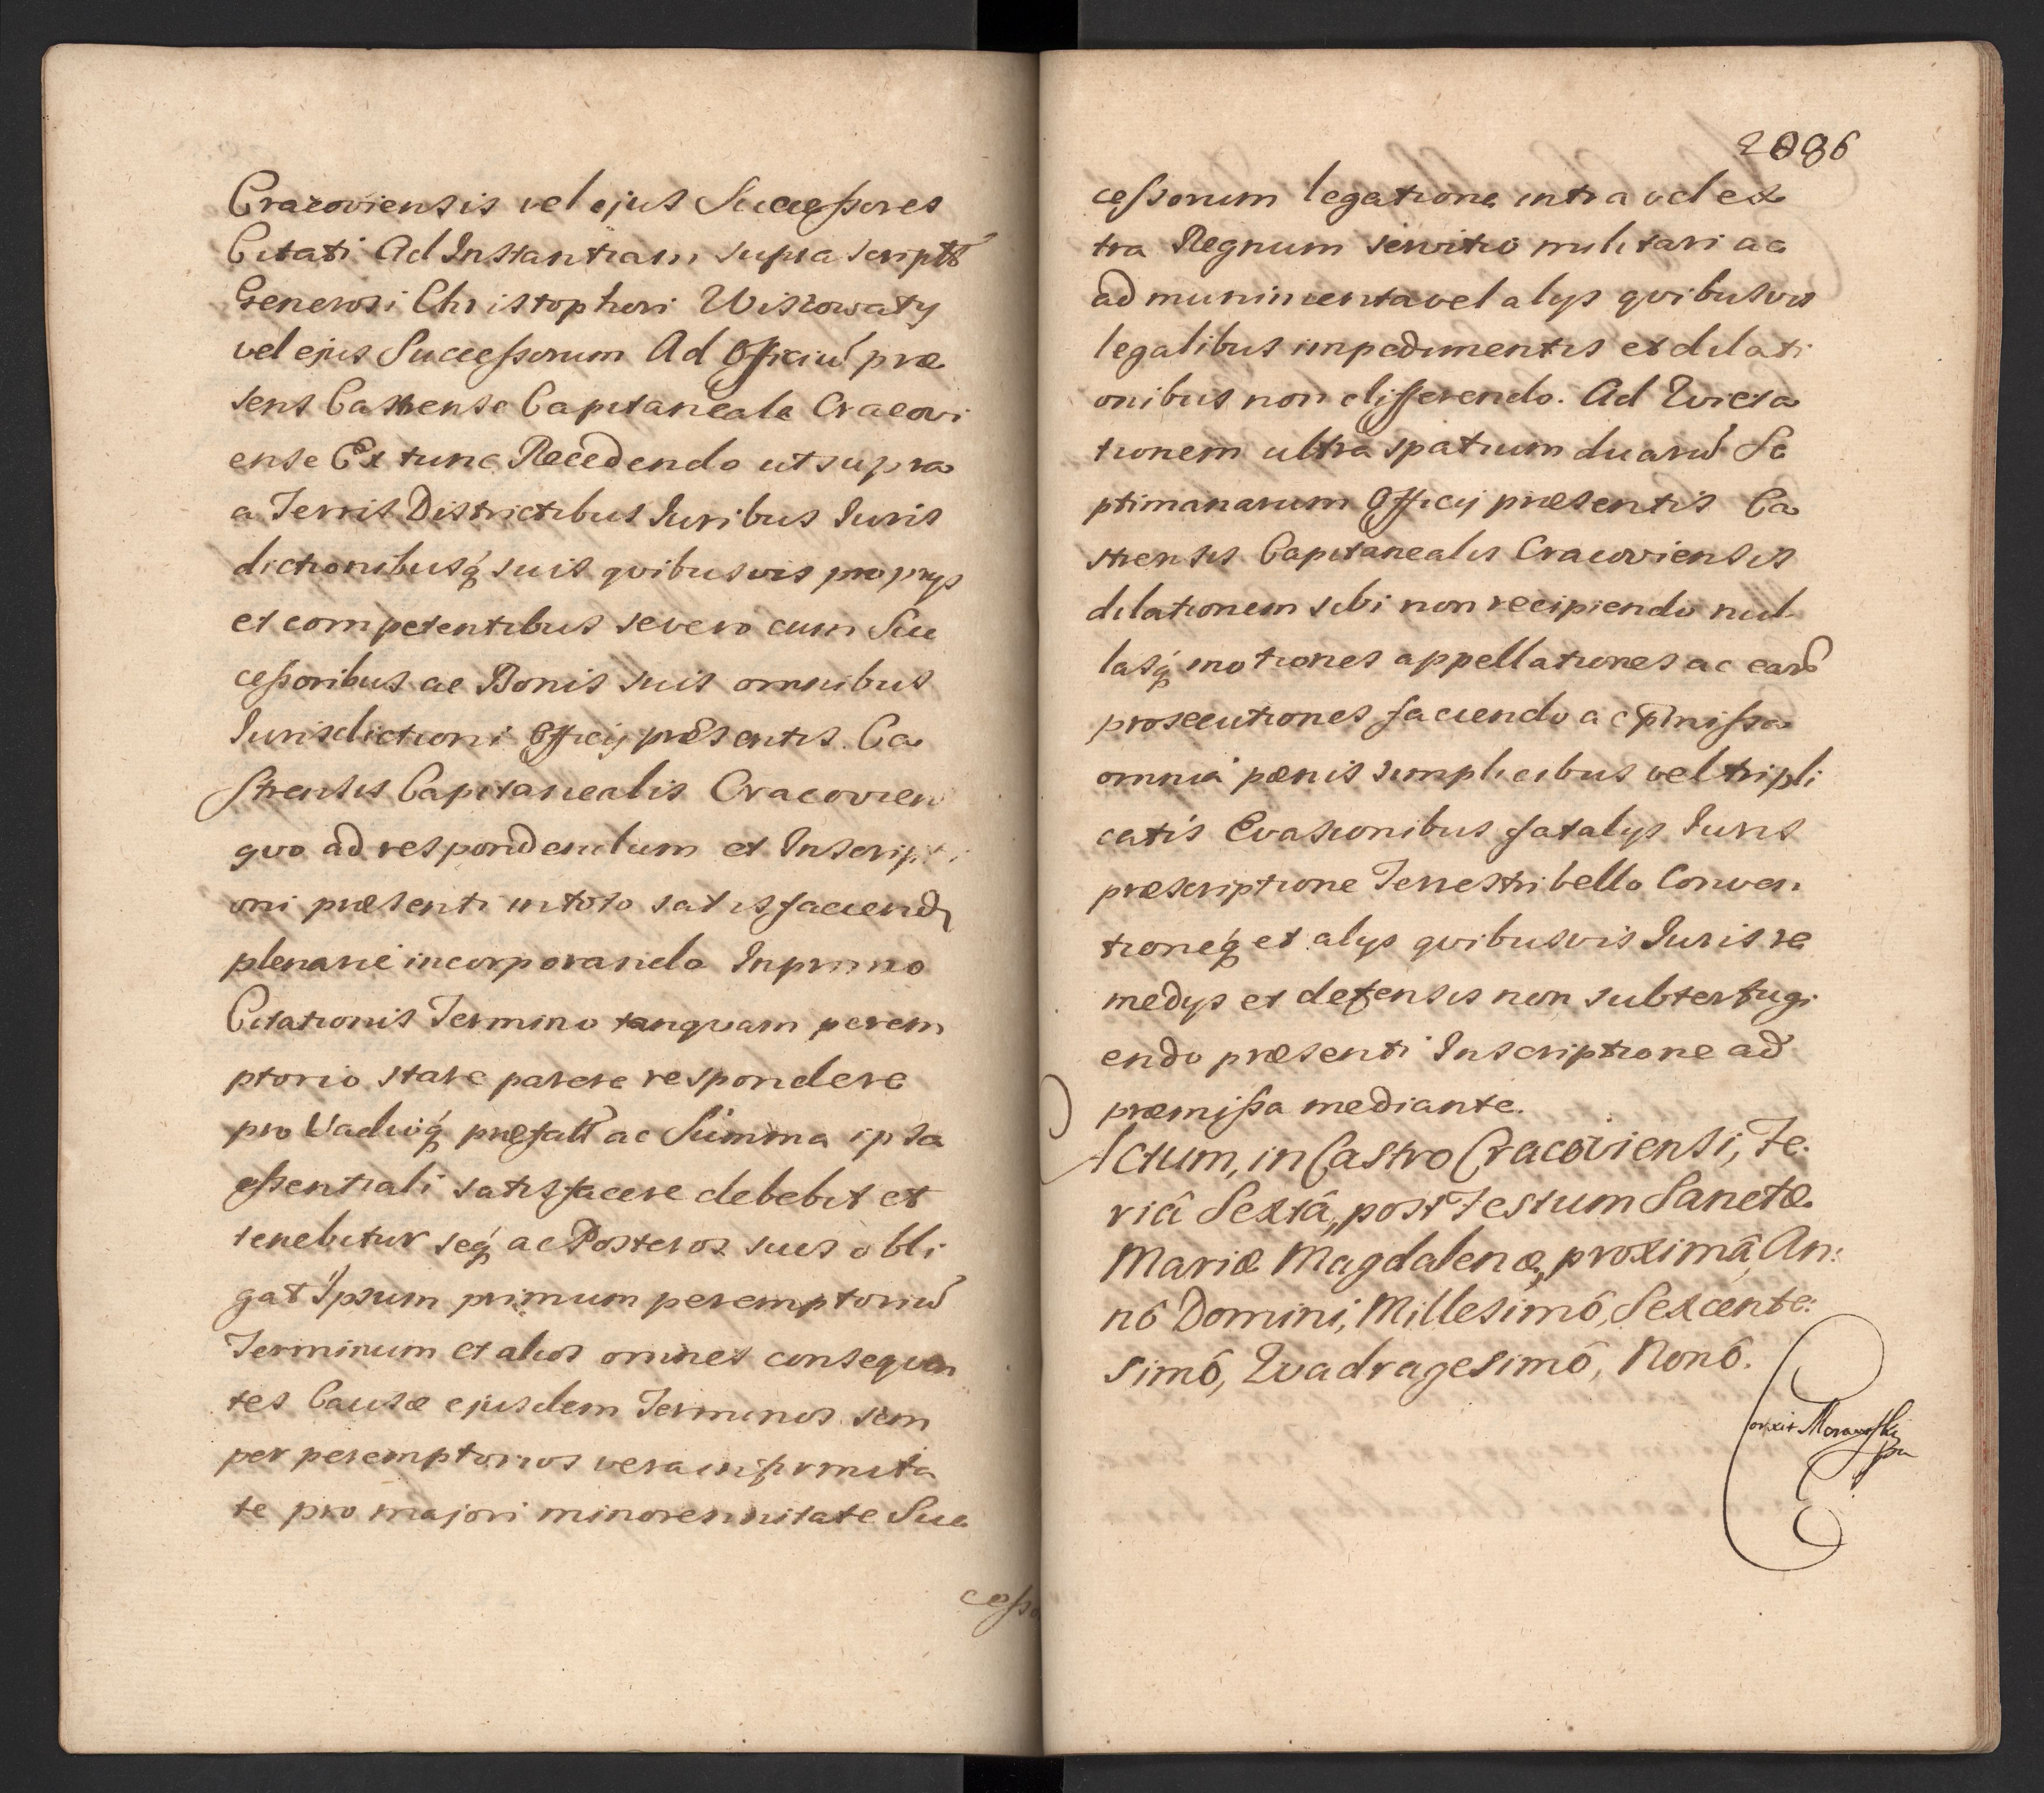 Cracoviensis vel ejus Successores
Citati Ad Instantiam supra scriptti
Generosi Christophori Wiszowaty
vel ejus Successorum Ad Officiu præ
sens Castrense Capitaneale Cracovi
ense Ex tunc Recedendo ut supra
a Terris Districtibus Iuribus Iuris
dictionibusq suis qvibusvis proprys
et competentibus severo cum Suc
cessoribus ac Bonis suis omnibus
Iurisdictioni Officij præsentis Ca
strensis Capitanealis Cracovien
qvo ad respondendum et Inscripti
oni præsenti in toto satisfaciend
plenarie incorporando In primo
Citationis Termino tanqvam perem
ptorio stare parere respondere
pro Vadioq præfatt ac Summa ipsa
essentiali satisfacere debebit et
tenebitur seq ac Posteros suos obli
gat Ipsum primum peremptoriu
Terminum et alios omnes conseqven
tes Causæ ejusdem Terminos sem
per peremptorios vera infirmita
te pro majori minorennitate Suc
cesso
2086
cessorum legatione intra vel ex
tra Regnum servitio militari ac
ad munimenta vel alys qvibusvis
legalibus impedimentis et dilati
onibus non differendo. Ad Evicta
tionem ultra spatium duaru Se
ptimanarum Officij præsentis Ca
strensis Capitanealis Cracoviensis
dilationem sibi non recipiendo nul
lasq motiones appellationes ac earu
prosecutiones faciendo ac pmissa
omnia pænis simplicibus vel tripli
catis Evasionibus fatalys Iuris
præscriptione Terrestri bello Conven
tioneq et alys qvibusvis Iuris re
medys et defensis non subterfugi
endo præsenti Inscriptione ad
præmissa mediante.
Actum, in Castro Cracoviensi, Fe:
riâ Sextâ, post Festum Sanctæ
Mariæ Magdalenæ, proximâ, An:
nô Domini, Millesimô, Sexcente:
simô, Qvadragesimô, Nonô.
Corxit Morawski